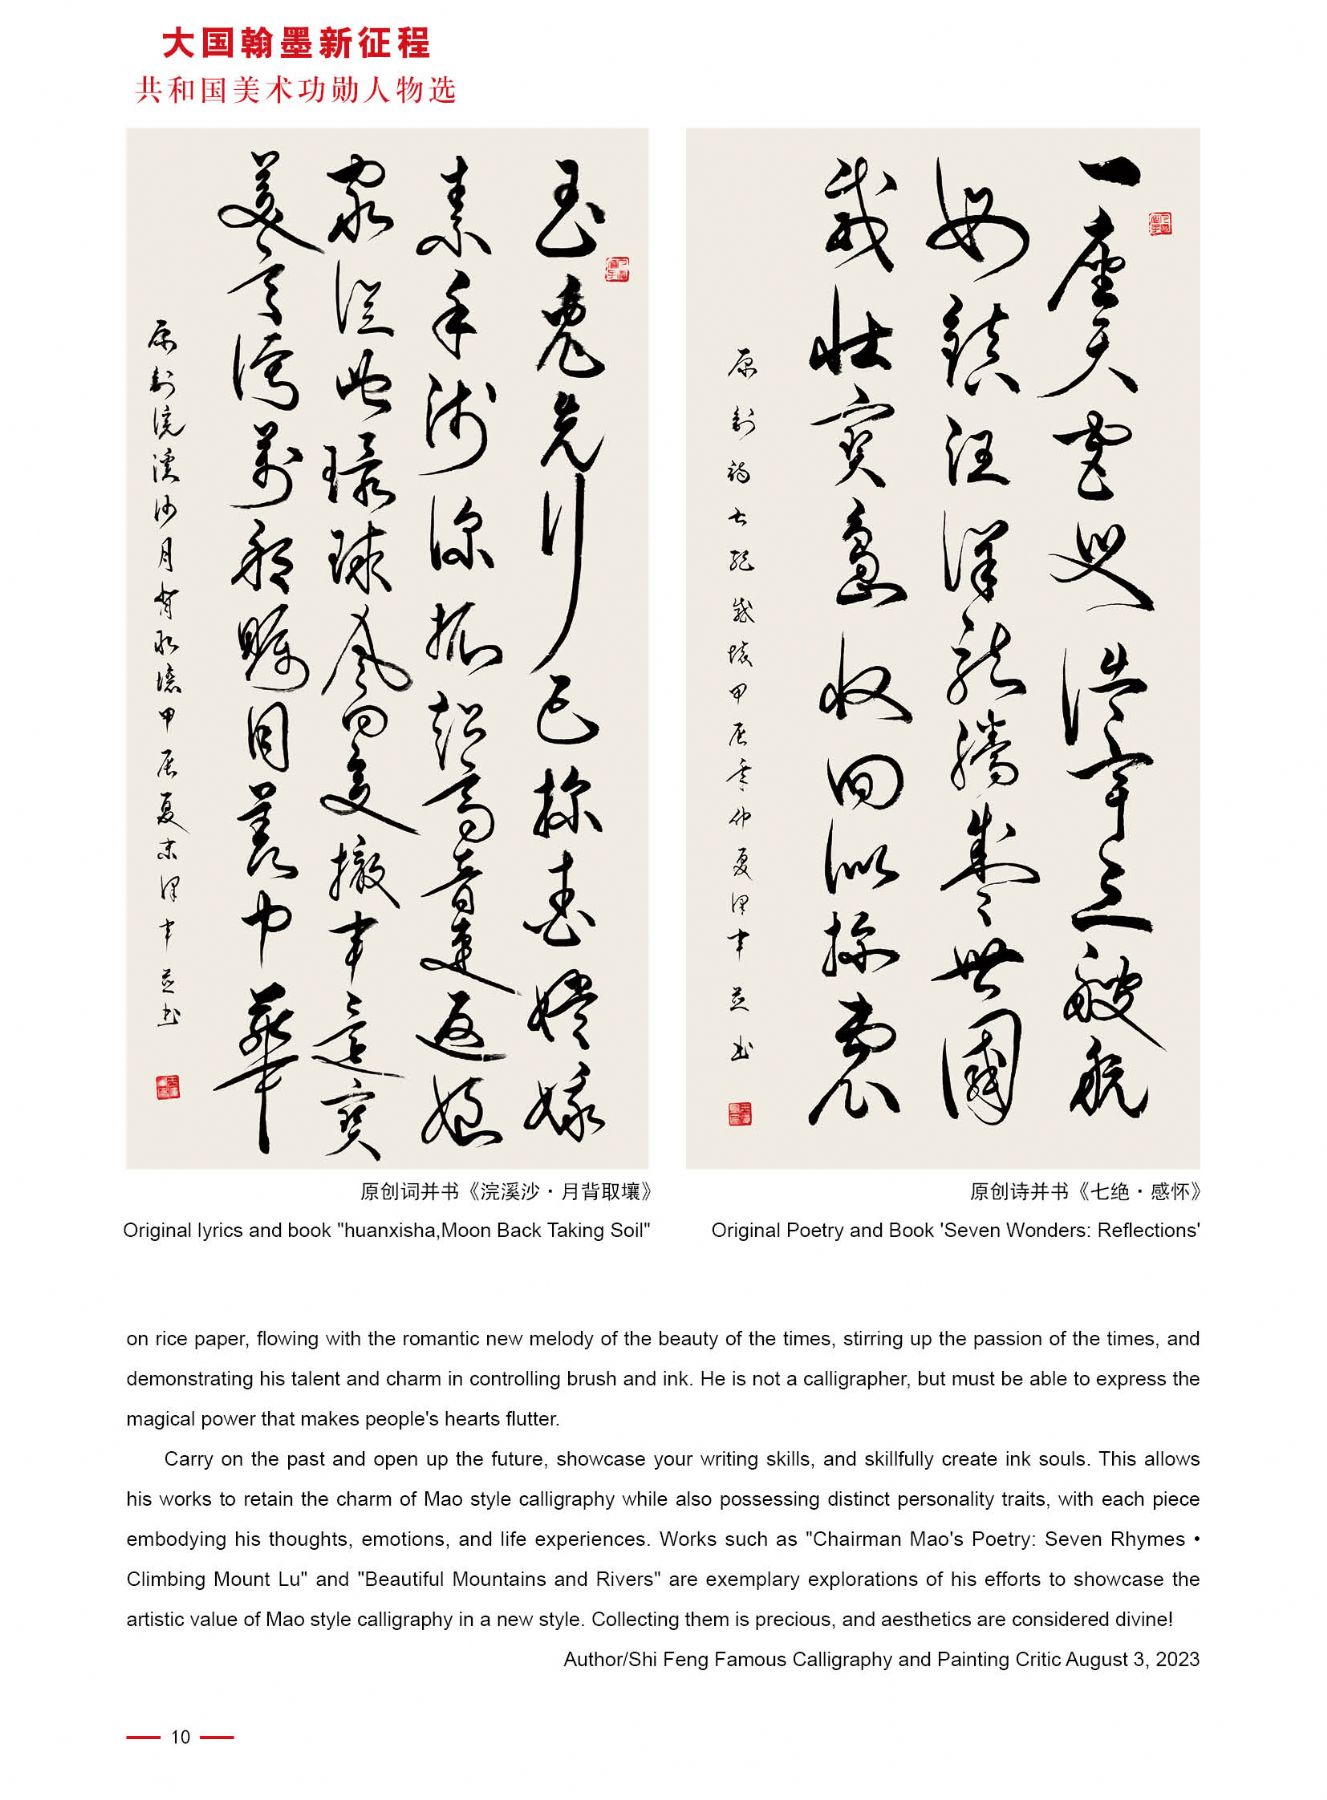 大国翰墨新征程
共和国美术功勋人物选
一座天宫
浩宇立艘航
母镇汪洋龙腾
世国
我壮宝岛收回
玉兔先行已
素手
深抓
高音速返
家从此环球风
变
宝
美
万
瞩目
中华
原创浣溪沙月背取壤甲辰夏末泽中并书
原创诗七绝感怀甲辰季仲夏泽中并书
原创词并书《浣溪沙·月背取壤》
Original lyrics and book "huanxisha,Moon Back Taking Soil"
原创诗并书《七绝·感怀》
Original Poetry and Book 'Seven Wonders: Reflections'
on rice paper, flowing with the romantic new melody of the beauty of the times, stirring up the passion of the times, and
demonstrating his talent and charm in controlling brush and ink. He is not a calligrapher, but must be able to express the
magical power that makes people's hearts flutter.
Carry on the past and open up the future, showcase your writing skills, and skillfully create ink souls. This allows
his works to retain the charm of Mao style calligraphy while also possessing distinct personality traits, with each piece
embodying his thoughts, emotions, and life experiences. Works such as "Chairman Mao's Poetry: Seven Rhymes •
Climbing Mount Lu" and "Beautiful Mountains and Rivers" are exemplary explorations of his efforts to showcase the
artistic value of Mao style calligraphy in a new style. Collecting them is precious, and aesthetics are considered divine!
Author/Shi Feng Famous Calligraphy and Painting Critic August 3, 2023
10